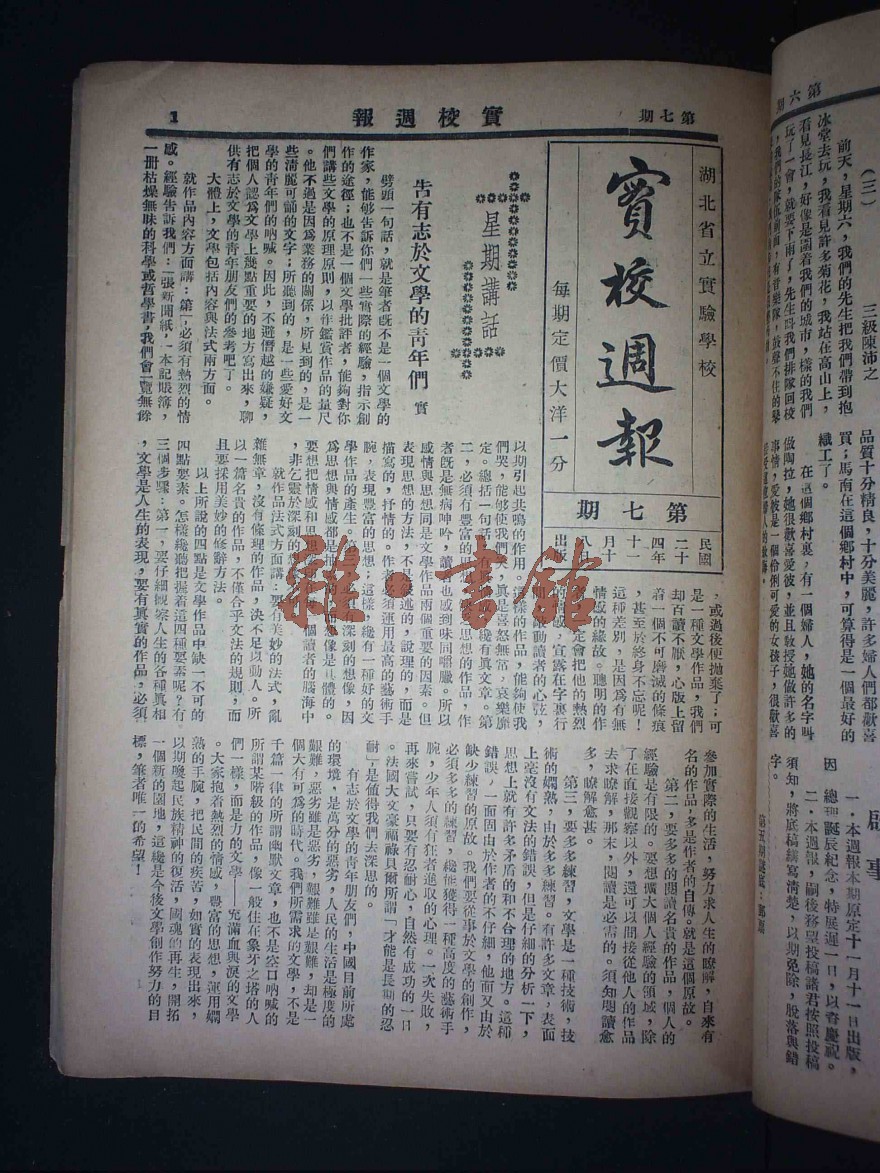 期六第
（三）　三級陳沛之
前天，星期六，我們的先生把我們帶到抱
冰堂去玩，我看見許多菊花，我站在高山上，
看見長江，好像是圍着我們的城市，樣的我們
玩了一會，就要下雨了，先生叫我們排隊回校
品質十分精良，十分美麗，許多婦人們都歡喜
買；馬南在這個鄉村中，可算得是一個最好的
織工了。
在這個鄉村裏，有一個婦人，她的名字叫
做陶拉，她很歡喜愛彼，並且教授她做許多的
事情，愛彼是一個伶俐可愛的女孩子，很歡喜
事
一．本週報本期原定十一月十一日出版，
因　總理誕辰紀念，特展遲一日，以眷慶祝。
二．本週報，嗣後務望投稿諸君按照投稿
須知，將底稿繕寫清楚，以期免除，脫落與錯
字。
第五期謎底：
期七第
報週校實
1
湖北省立實驗學校
實校週報
每期定價大洋一分
期七第
民國
二十
四年
十一
月十
八日
出版
星期講話
告有志於文學的青年們　實
劈頭一句話，就是筆者旣不是一個文學的
作家，能够告訴你們一些實際的經驗，指示創
作的途徑；也不是一個文學批評者，能夠對你
們講些文學的原理原則，以作鑑賞作品的量尺
。他不過是因爲業務的關係，所見到的，是一
些淸麗可誦的文字；所聽到的，是一些愛好文
學的靑年們的吶喊。因此，不避僭越的嫌疑，
把個人認爲文學上幾點重要的地方寫出來，聊
供有志於文學的靑年朋友們的參考吧了。
大體上，文學包括內容與法式兩方面。
就作品內容方面講：第一，必須有熱烈的情
感。經驗告訴我們：一張新聞紙，一本記賬簿，
一册枯燥無味的科學或哲學書，我們會一覽無餘
，或過後便抛棄了；可
是一種文學作品，我們
却百讀不厭，心版上留
着一個不可磨滅的條痕
，甚至於終身不忘呢！
這種差別，是因爲有無
情感的緣故。聰明的作
家一定會把他的熱烈
的情感，宣露在字裏行
間，激動讀者的心弦，
以期引起共鳴的作用。這樣的作品，能夠使我
們哭，能够使我們笑，眞是喜怒無常，哀樂靡
定。總括一句話，有眞情感纔有眞文章。第
二，必須有豐富的思想。缺乏思想的作品，作
者旣是無病呻吟，讀者也感到味同嚼臘。所以
感情與思想同是文學作品兩個重要的因素。但
表現思想的方法，不是敍述的，說理的，而是
描寫的，抒情的。作者必須運用最高的藝術手
腕，表現豐富的思想；這樣，纔有一種好的文
學作品的產生。第三，必須有深刻的想像，因
爲思想與情感都是抽象的，而想像是具體的。
要想把情感和思想　　　個讀者的腦海中
，非乞靈於深刻的想像不可。
就作品法式方面講：要有美妙的法式，亂
雜無章，沒有條理的作品，決不足以動人。所
以一篇名貴的作品，不僅合乎文法的規則，而
且要採用美妙的修辭方法。
以上所說的四點是文學作品中缺一不可的
四點要素。怎樣纔聽把握着這四種要素呢？有
三個步驟：第一，要仔細觀察人生的各種眞相
，文學是人生的表現，要有眞實的作品，必須
參加實際的生活，努力求人生的瞭解，自來有
名的作品，多是作者的自傳。就是這個原故。
第二，要多多的閱讀名貴的作品，個人的
經驗是有限的。要想擴大個人經驗的領域，除
了在直接觀察以外，還可以間接從他人的作品
去求瞭解，那末，閱讀是必需的。須知閱讀愈
多，瞭解愈甚。
第三，要多多練習，文學是一種技術，技
術的嫻熟，由於多多練習。有許多文章，表面
上毫沒有文法的錯誤，但是仔細的分析一下，
思想上就有許多矛盾的和不合理的地方。這種
錯誤，一面固由於作者的不仔細，他面又由於
缺少練習的原故。我們要從事於文學的創作，
必須多多的練習，纔能獲得一種高度的藝術手
腕，少年人須有狂者進取的心理。一次失敗，
再來嘗試，只要有忍耐心，自然有成功的一日
。法國大文豪福祿貝爾所謂「才能是長期的忍
耐」是値得我們去深思的。
有志於文學的靑年朋友們，中國目前所處
的環境，是萬分的惡劣，人民的生活是極度的
艱難，惡劣雖是惡劣，艱難雖是艱難，却是一
個大有可爲的時代。我們所需求的文學，不是
千篇一律的所謂幽默文章，也不是空口吶喊的
所謂某階級的作品，像一般住在象牙之塔的人
們一樣，而是力的文學——充滿血與淚的文學
。大家抱着熱烈的情感，豐富的思想，運用嫺
熟的手腕，把民間的疾苦，如實的表現出來，
以期喚起民族精神的復活，國魂的再生，開拓
一個新的園地，這纔是今後文學創作努力的目
標，筆者唯一的希望！
雜·書館